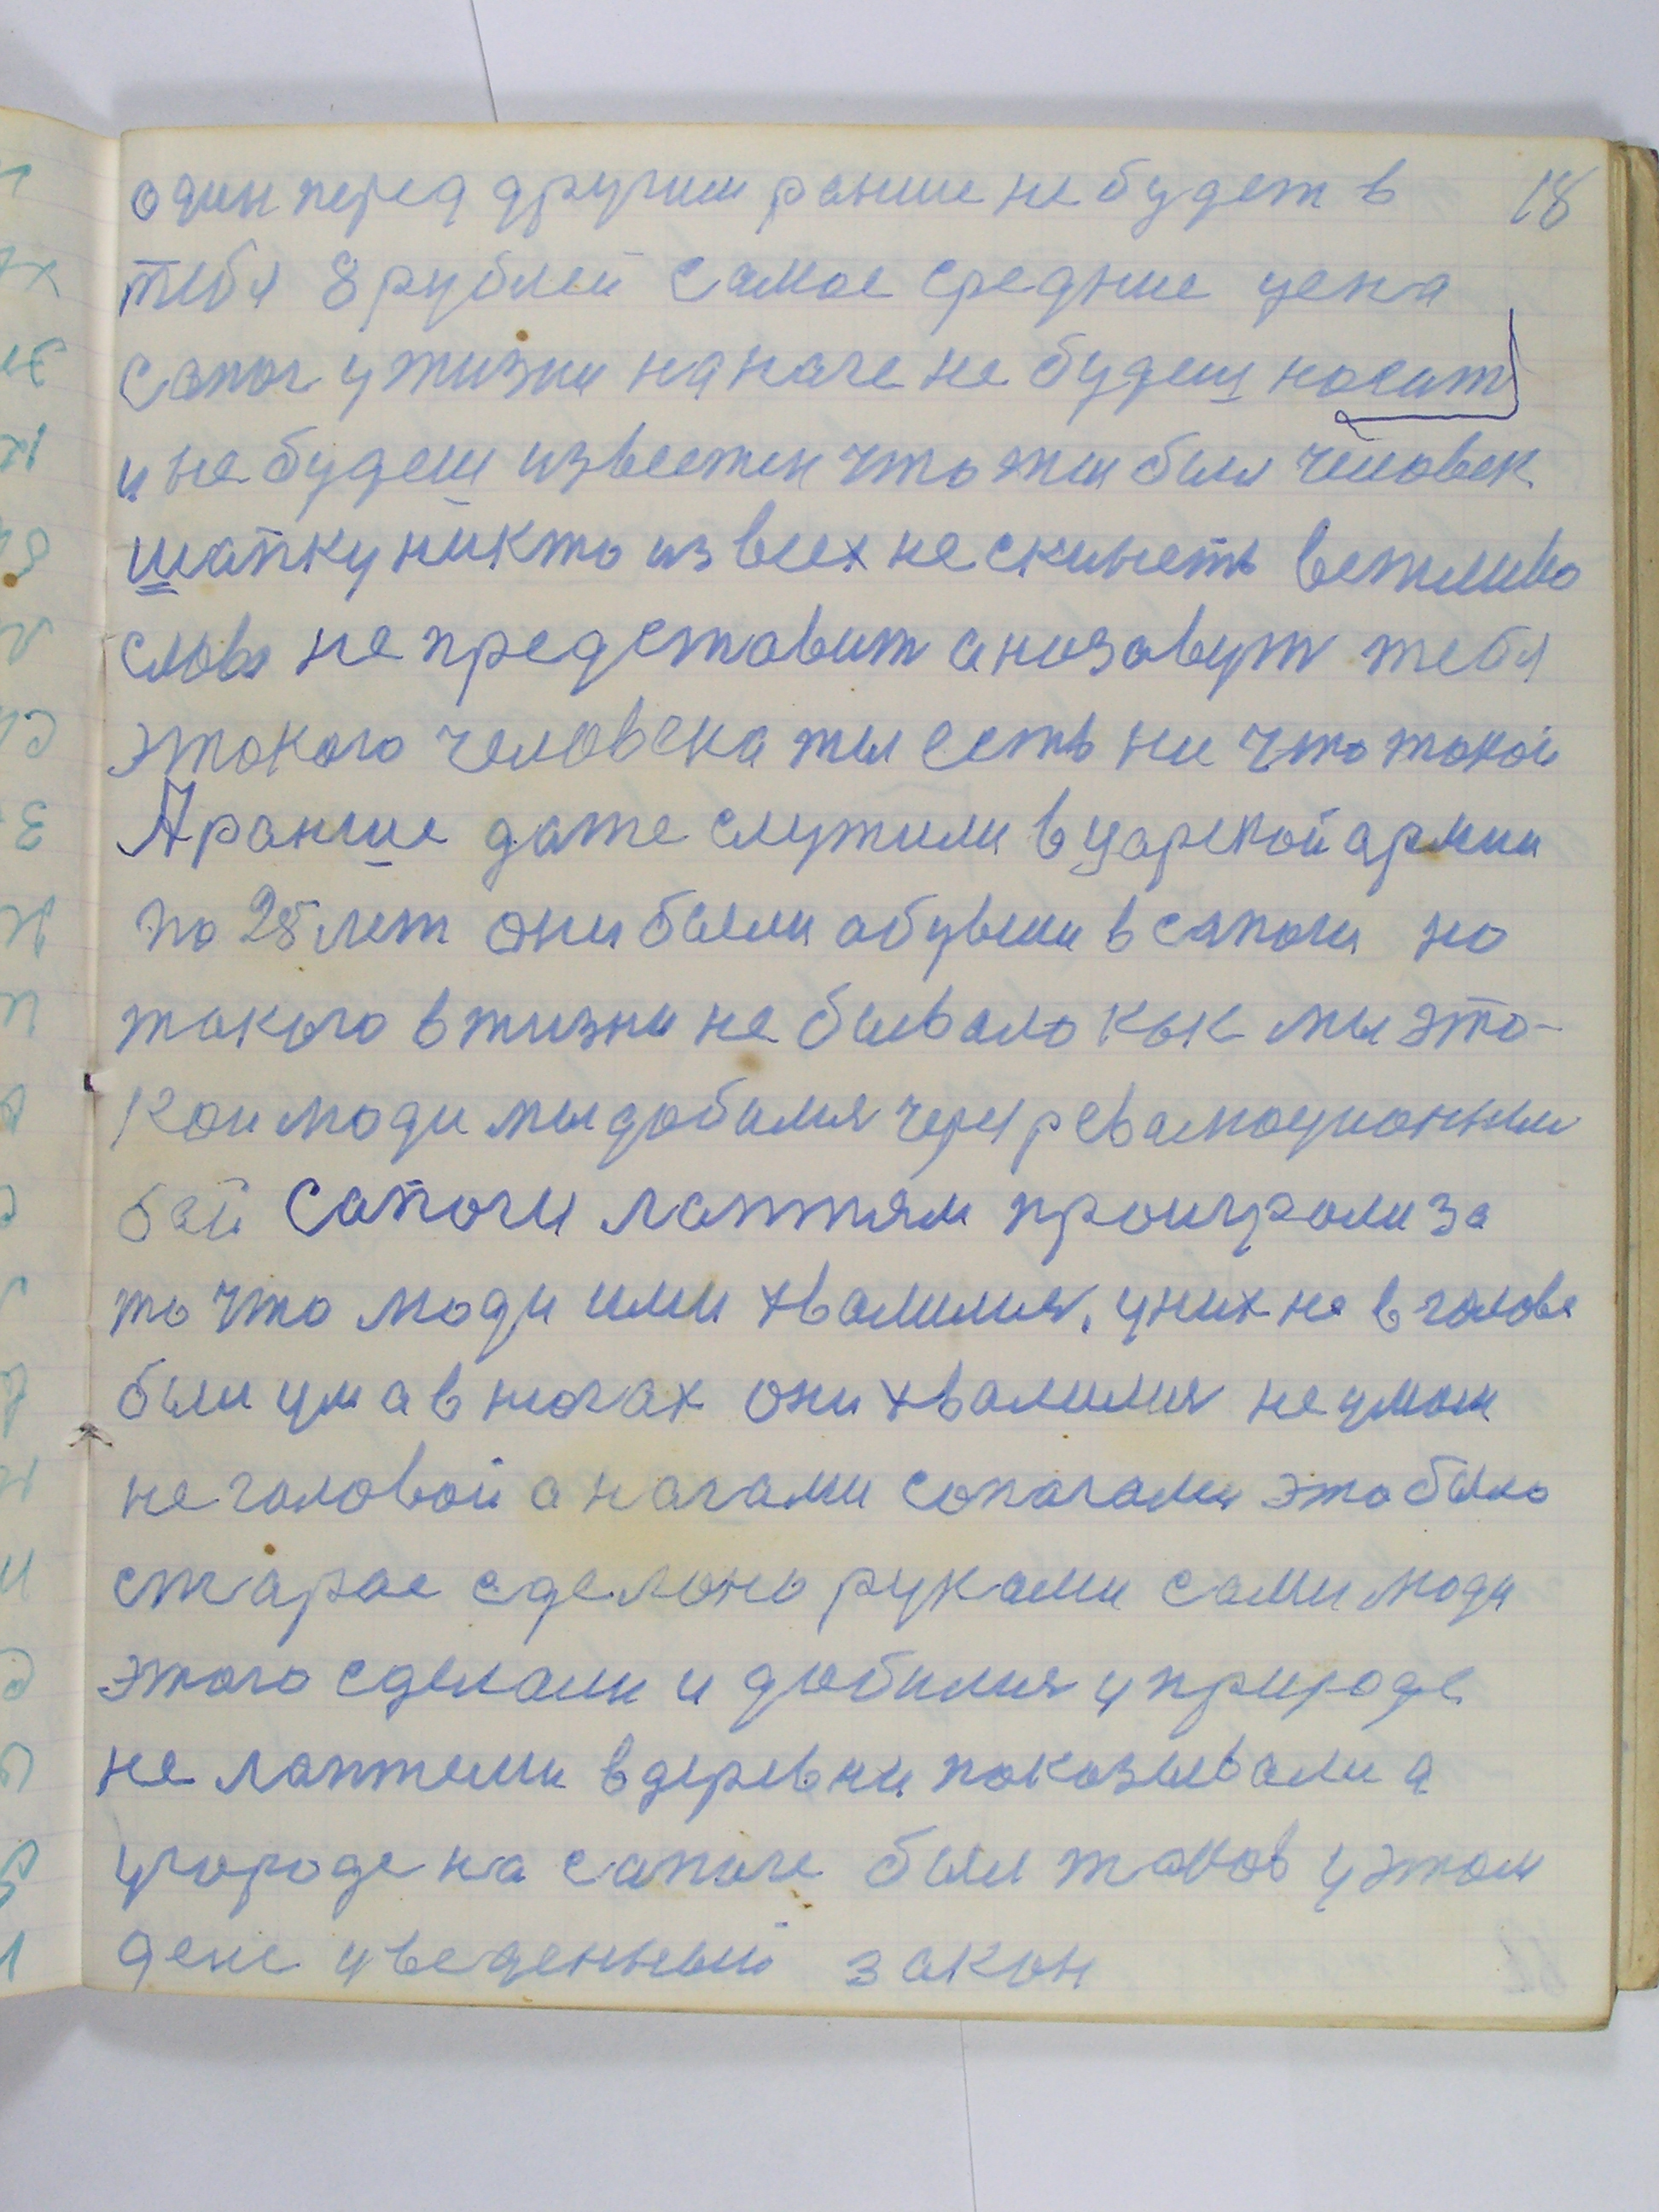 один перед другим ранше не будет в 18
тебя 8 рублей самое средние цена
сапог у жизни на наге не будеш носить
и не будеш известен что ты был человек
шапку никто из всех не скинеть вежливо
слова не представит а назавут тебя
этокого человека ты есть ни что токой
А раньше даже служили в царской армии
по 25 лет они были обувши в сапоги но
такого в жизни не бывало как мы это-
кои люди мы добился через революционный
бой Сапоги лаптям проиграли за
то что люди ими хвалился. у них не в голове
был ум а в ногах они хвалился не умом
не головой а ногами сапогами это было
старое сделоно руками сами люди
этого сделали и добился у природе
не лаптеми в деревни показывали а
у городе на сапоге был таков у этом
деле уведенный закон